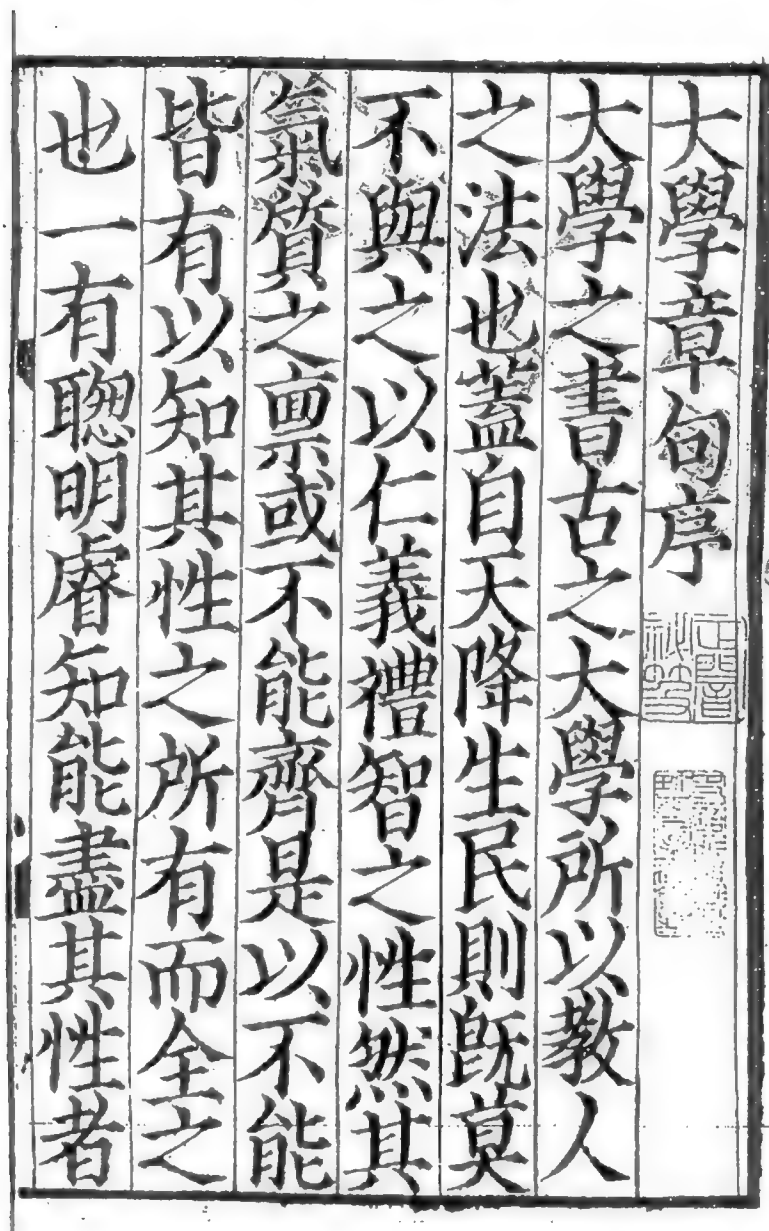 大學章句序
大學之書古之大學所以教人
之法也蓋自天降生民則旣莫
不與之以仁義禮智之性然其
氣質之稟或不能齊是以不能
皆有以知其性之所有而全之
也一有聰明睿知能盡其性者